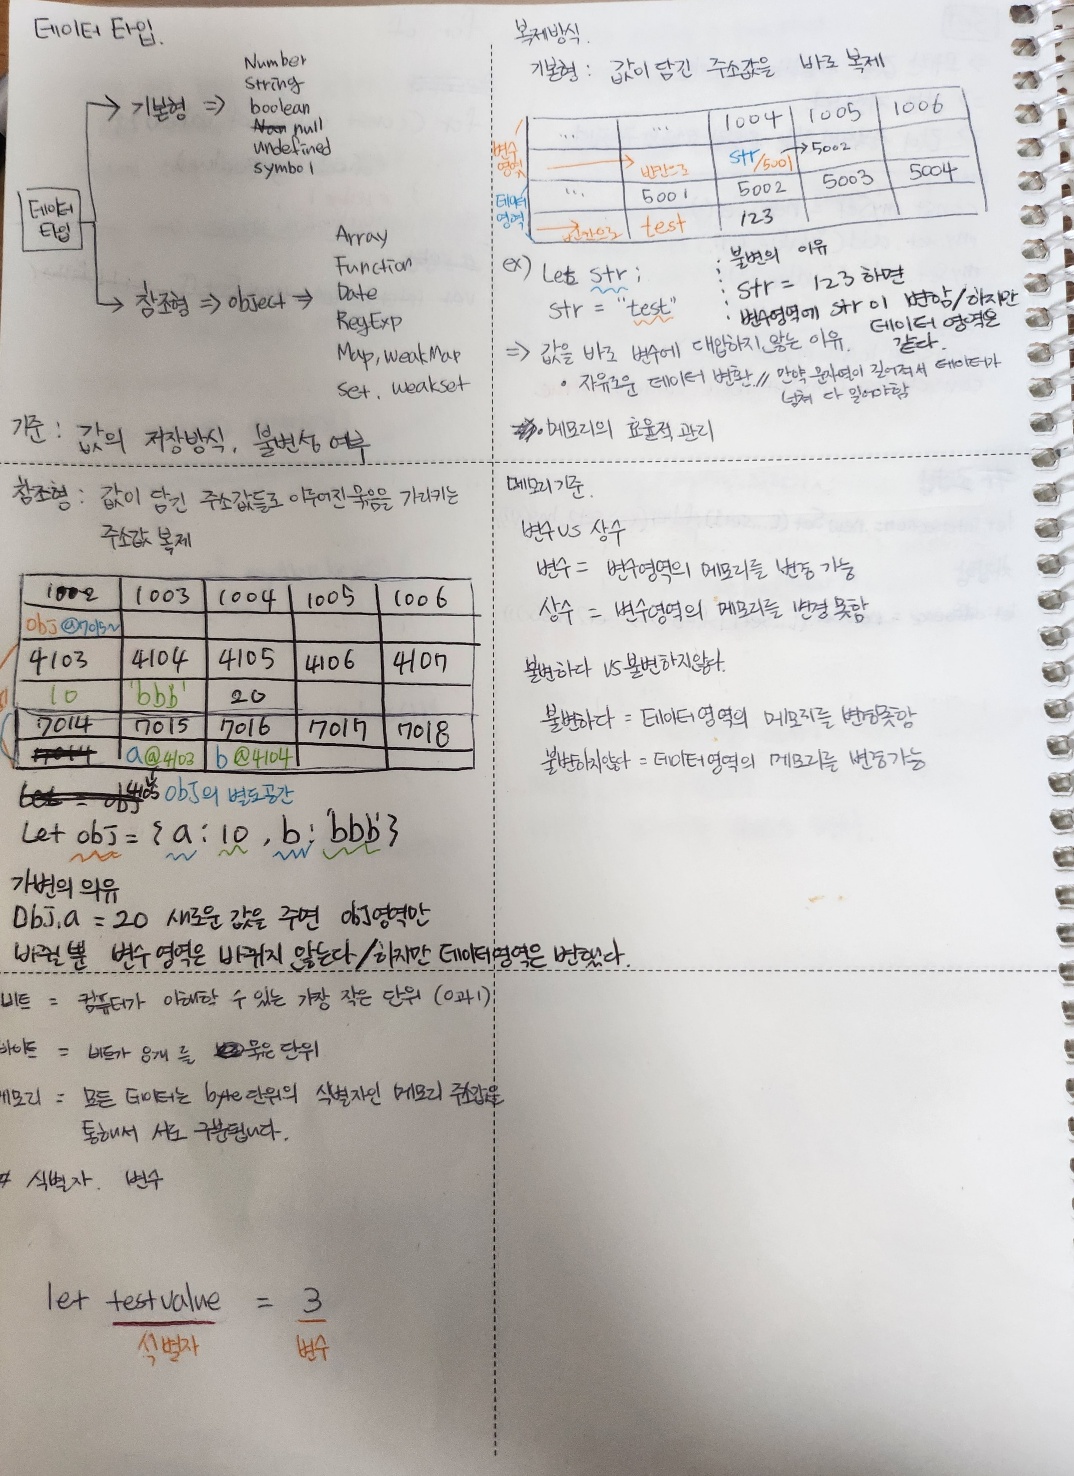 데이터 타입.
Number
string
기본형 => boolean
null
undefined
symbol
데이터
타입
Array
Function
참조형 => object => Date
RegExp
Map, weakMap
set, weakset
기준 : 값의 저장방식, 불변성 여부
복제방식.
기본형 : 값이 담긴 주소값을 바로 복제
... ... 1004 1005 1006
변수
영역 빈칸으로 str/5001 →5002
데이터
영역 ... 5001 5002 5003 5004
빈칸으로 test 123
ex) Let str ;
str = "test"
: 불변의 이유
: str = 123 하면
: 변수영역에 str이 변함/하지만
데이터 영역은
같다.
=> 값을 바로 변수에 대입하지 않는 이유.
• 자유로운 데이터 변환 // 만약 문자열이 길어져서 데이터가
넘쳐 다 밀어야함
• 메모리의 효율적 관리
참조형 : 값이 담긴 주소값들로 이루어진 묶음을 가리키는
주소값 복제
1002 1003 1004 1005 1006
obj @7015~
4103 4104 4105 4106 4107
10 'bbb' 20
7014 7015 7016 7017 7018
a @4103 b @4104
4105 obj의 별도공간
Let obj = { a : 10 , b : 'bbb' }
가변의 의유
Obj.a = 20 새로운 값을 주면 obj영역만
바뀔 뿐 변수 영역은 바뀌지 않는다/하지만 데이터영역은 변했다.
메모리기준.
변수 VS 상수
변수 = 변수영역의 메모리를 변경 가능
상수 = 변수영역의 메모리를 변경 못함
불변하다 VS 불변하지않다.
불변하다 = 데이터영역의 메모리를 변경못함
불변하지않다 = 데이터영역의 메모리를 변경가능
비트 = 컴퓨터가 이해할 수 있는 가장 작은 단위 (0과1)
바이트 = 비트가 8개를 묶은 단위
메모리 = 모든 데이터는 byte단위의 식별자인 메모리 주소값을
통해서 서로 구분됩니다.
# 식별자. 변수
let testvalue = 3
식별자 변수